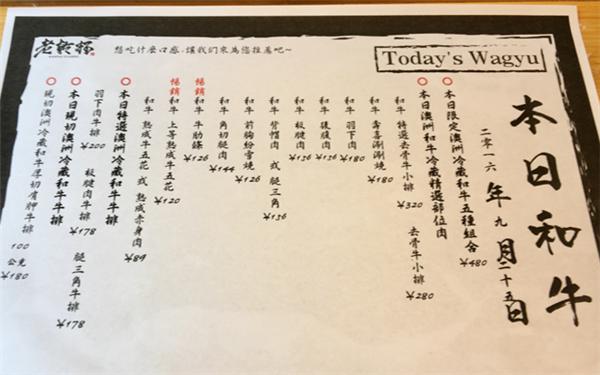 老乾杯
想吃什麼口感,讓我們來為您推薦吧~
Today's Wagyu
本日和牛
二零一六年九月二十五日
本日限定澳洲和牛五種組合 ¥480
本日澳洲和牛冷藏精選部位肉
和牛 特選去骨牛小排 ¥320 去骨牛小排 ¥280
和牛 壽喜涮涮燒 ¥180
和牛 羽下肉 ¥180
和牛 後腹肉 ¥136
和牛 板腱肉 ¥136
和牛 背帽肉 或 腿三角 ¥136
和牛 前胸紛雪燒 ¥126
和牛 角切腿肉 ¥144
暢銷 和牛 牛肋條 ¥126
暢銷 和牛 上等熟成牛五花 ¥120
和牛 熟成牛五花 或 熟成赤身肉 ¥89
本日特選澳洲冷藏和牛牛排
羽下肉牛排 ¥200 板腱肉牛排 ¥178 腿三角牛排 ¥178
本日現切澳洲冷藏和牛牛排
現切澳洲冷藏和牛厚切肩胛牛排 100公克 ¥180